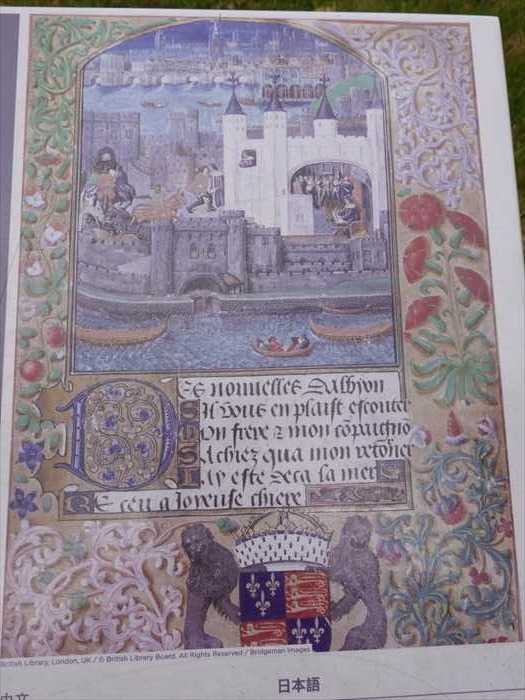 Des nouvelles Dalbyon
Sil vous en plaist escouter
Mon frere & mon cōpaignō
Sachiez qua mon retōner
Iay este deca la mer
Receu a Joyeuse chiere
British Library, London, UK / © British Library Board. All Rights Reserved / Bridgeman Images
中文
日本語